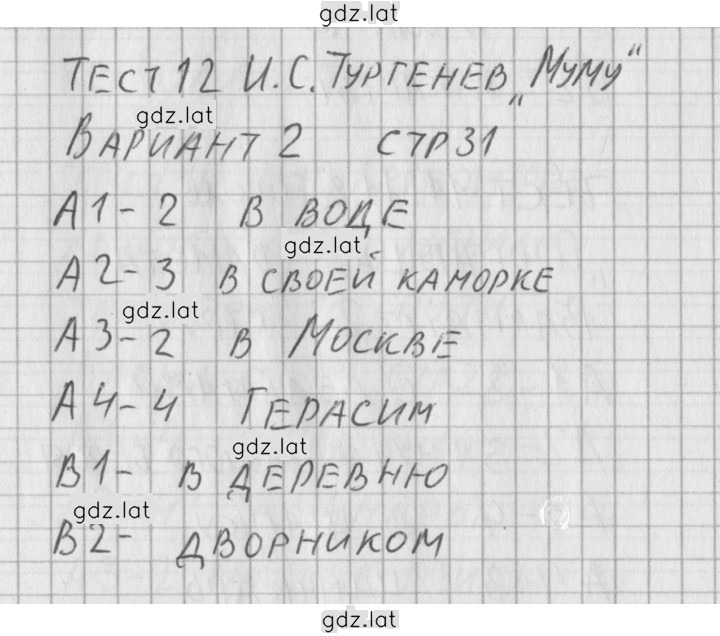 gdz.lat
ТЕСТ 12 И.С. ТУРГЕНЕВ „МУМУ“
gdz.lat
ВАРИАНТ 2 СТР 31
А1 - 2 В ВОДЕ
gdz.lat
А2 - 3 В СВОЕЙ КАМОРКЕ
gdz.lat
А3 - 2 В МОСКВЕ
А4 - 4 ГЕРАСИМ
gdz.lat
В1 - В ДЕРЕВНЮ
gdz.lat
В2 - ДВОРНИКОМ
gdz.lat